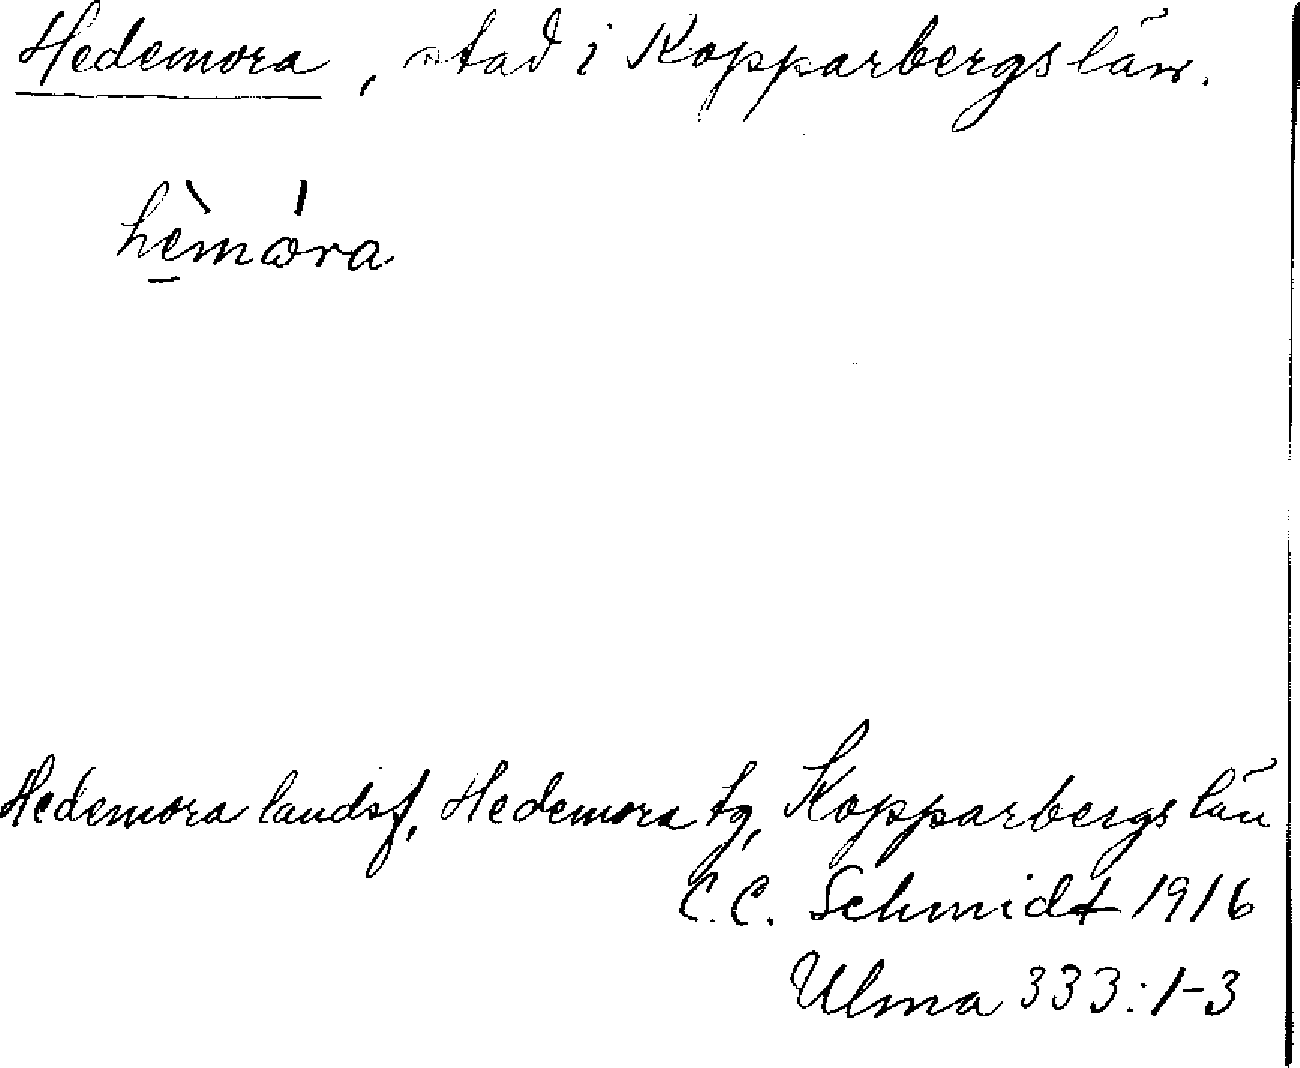 Hedemora, stad i Kopparbergs län.
hèmœ́ra
Hedemora landsf, Hedemora tg, Kopparbergs län
C.C. Schmidt 1916
Ulma 333:1-3